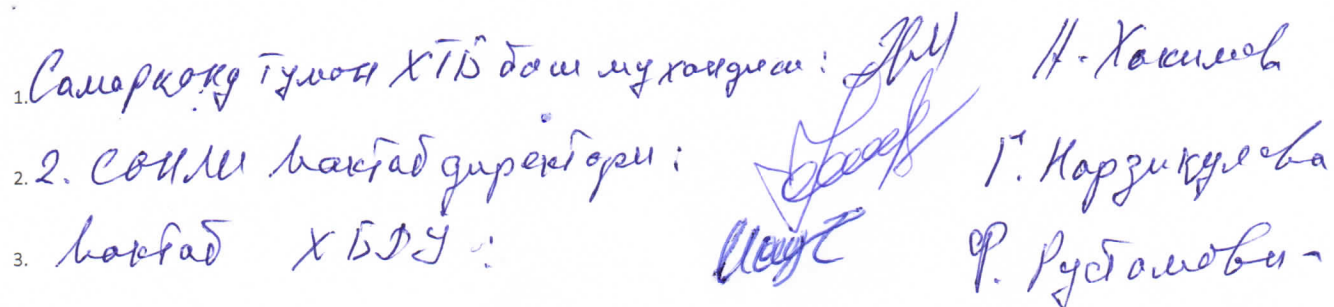 1. Самарканд туман ХТБ бош мухандиси: Н. Хакимов
2. 2. СОНЛИ мактаб директори: Г. Нарзикулова
3. мактаб ХБДУ: Ф. Рустамови-